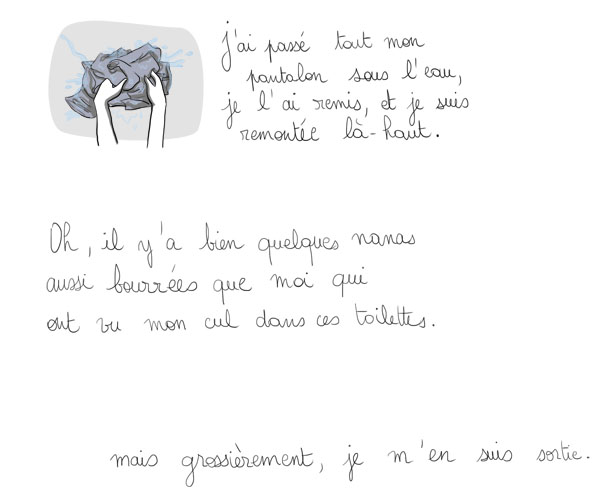 j'ai passé tout mon
pantalon sous l'eau,
je l'ai remis, et je suis
remontée là-haut.
Oh, il y'a bien quelques nanas
aussi bourrées que moi qui
ont vu mon cul dans ces toilettes.
mais grossièrement, je m'en suis sortie.